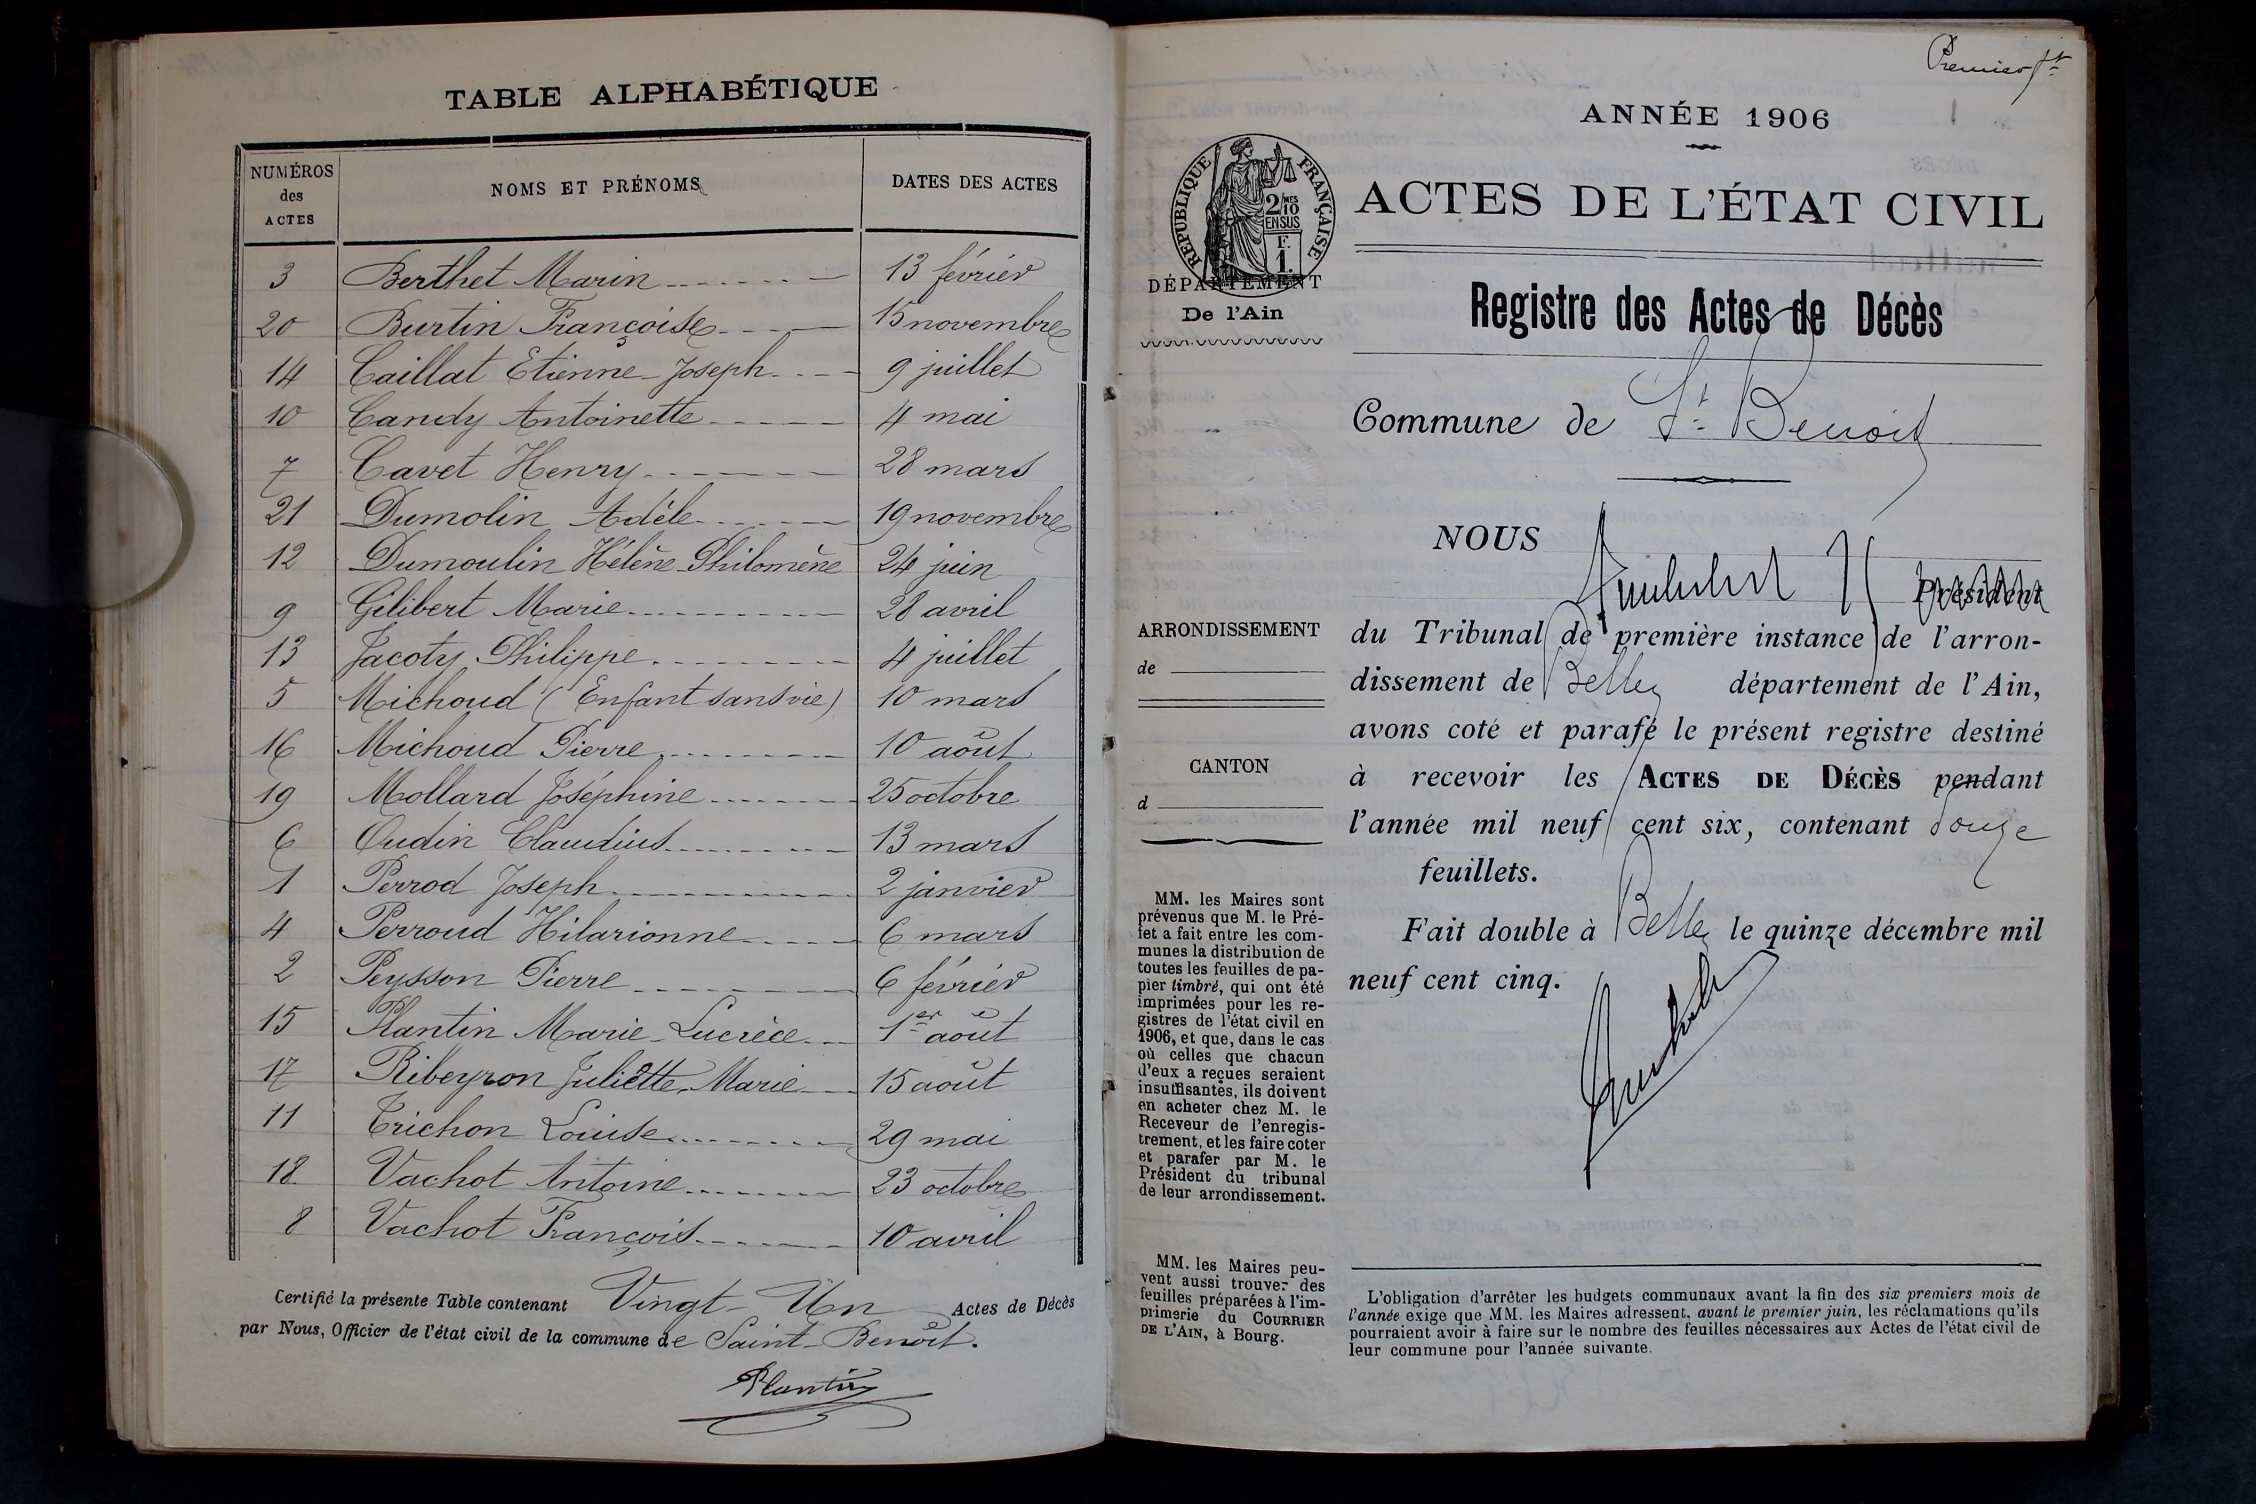 TABLE ALPHABÉTIQUE
NUMÉROS des ACTES | NOMS ET PRÉNOMS | DATES DES ACTES
3 Berthet Marin 13 février
20 Burtin Françoise 15 novembre
14 Caillat Etienne-Joseph 9 juillet
10 Candy Antoinette 4 mai
7 Cavet Henry 28 mars
21 Dumolin Adèle 19 novembre
12 Dumoulin Hélène Philomène 24 juin
9 Gilibert Marie 28 avril
13 Jacoty Philippe 4 juillet
5 Michoud (Enfant sans vie) 10 mars
16 Michoud Pierre 10 août
19 Mollard Joséphine 25 octobre
6 Oudin Claudius 13 mars
1 Perrod Joseph 2 janvier
4 Perroud Hilarionne 6 mars
2 Peysson Pierre 6 février
15 Plantin Marie-Lucrèce 1er août
17 Ribeyron Juliette Marie 15 août
11 Trichon Louise 29 mai
18 Vachot Antoine 23 octobre
8 Vachot François 10 avril
Certifié la présente Table contenant Vingt-Un Actes de Décès
par Nous, Officier de l'état civil de la commune de Saint-Benoît.
Plantin
Premier ft
ANNÉE 1906
RÉPUBLIQUE FRANÇAISE
2 MES 10
EN SUS
F.
1.
DÉPARTEMENT
De l'Ain
ACTES DE L'ÉTAT CIVIL
Registre des Actes de Décès
Commune de St Benoit
NOUS
Président
du Tribunal de première instance de l'arron-
dissement de Belley département de l'Ain,
avons coté et parafé le présent registre destiné
à recevoir les ACTES DE DÉCÈS pendant
l'année mil neuf cent six, contenant douze
feuillets.
Fait double à Belley le quinze décembre mil
neuf cent cinq.
ARRONDISSEMENT
de
CANTON
d
MM. les Maires sont
prévenus que M. le Pré-
fet a fait entre les com-
munes la distribution de
toutes les feuilles de pa-
pier timbré, qui ont été
imprimées pour les re-
gistres de l'état civil en
1906, et que, dans le cas
où celles que chacun
d'eux a reçues seraient
insuffisantes, ils doivent
en acheter chez M. le
Receveur de l'enregis-
trement, et les faire coter
et parafer par M. le
Président du tribunal
de leur arrondissement.
MM. les Maires peu-
vent aussi trouver des
feuilles préparées à l'im-
primerie du COURRIER
DE L'AIN, à Bourg.
L'obligation d'arrêter les budgets communaux avant la fin des six premiers mois de
l'année exige que MM. les Maires adressent, avant le premier juin, les réclamations qu'ils
pourraient avoir à faire sur le nombre des feuilles nécessaires aux Actes de l'état civil de
leur commune pour l'année suivante.